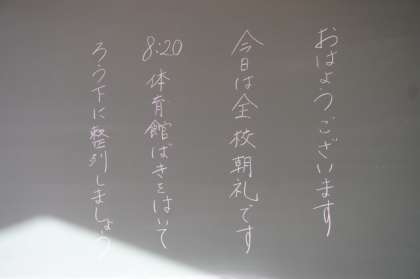 おはようございます
今日は全校朝礼です
8:20 体育館ばきをはいて
ろう下に整列しましょう